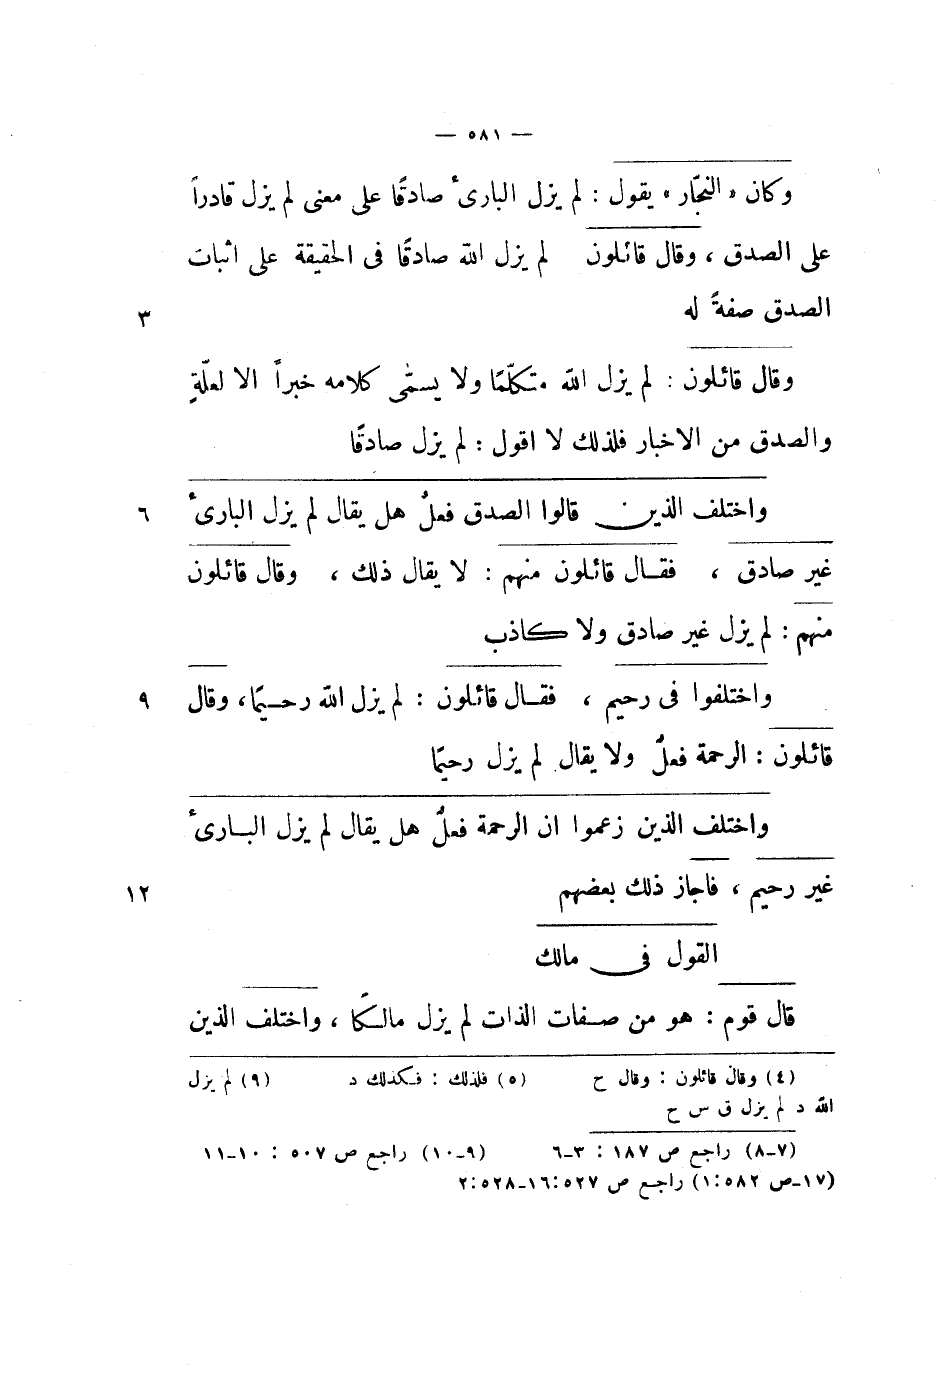 — ٥٨١ —
وكان «النجّار» يقول : لم يزل البارئ صادقًا على معنى لم يزل قادراً
على الصدق ، وقال قائلون لم يزل الله صادقًا فى الحقيقة على اثبات
الصدق صفةً له ٣
وقال قائلون : لم يزل الله متكلّمًا ولا يسمّى كلامه خبراً الا لعلّةٍ
والصدق من الاخبار فلذلك لا اقول : لم يزل صادقًا
واختلف الذين قالوا الصدق فعلٌ هل يقال لم يزل البارئ ٦
غير صادق ، فقال قائلون منهم : لا يقال ذلك ، وقال قائلون
منهم : لم يزل غير صادق ولا كاذب
واختلفوا فى رحيم ، فقال قائلون : لم يزل الله رحيمًا، وقال ٩
قائلون : الرحمة فعلٌ ولا يقال لم يزل رحيمًا
واختلف الذين زعموا ان الرحمة فعلٌ هل يقال لم يزل البارئ
غير رحيم ، فاجاز ذلك بعضهم ١٢
القول فى مالك
قال قوم : هو من صفات الذات لم يزل مالكًا ، واختلف الذين
(٤) وقال قائلون : وقال ح (٥) فلذلك : فكذلك د (٩) لم يزل
الله د لم يزل ق س ح
(٧-٨) راجع ص ١٨٧ : ٣-٦ (٩-١٠) راجع ص ٥٠٧ : ١٠-١١
(١٧-ص ٥٨٢:١) راجع ص ٥٢٧:١٦-٥٢٨:٢